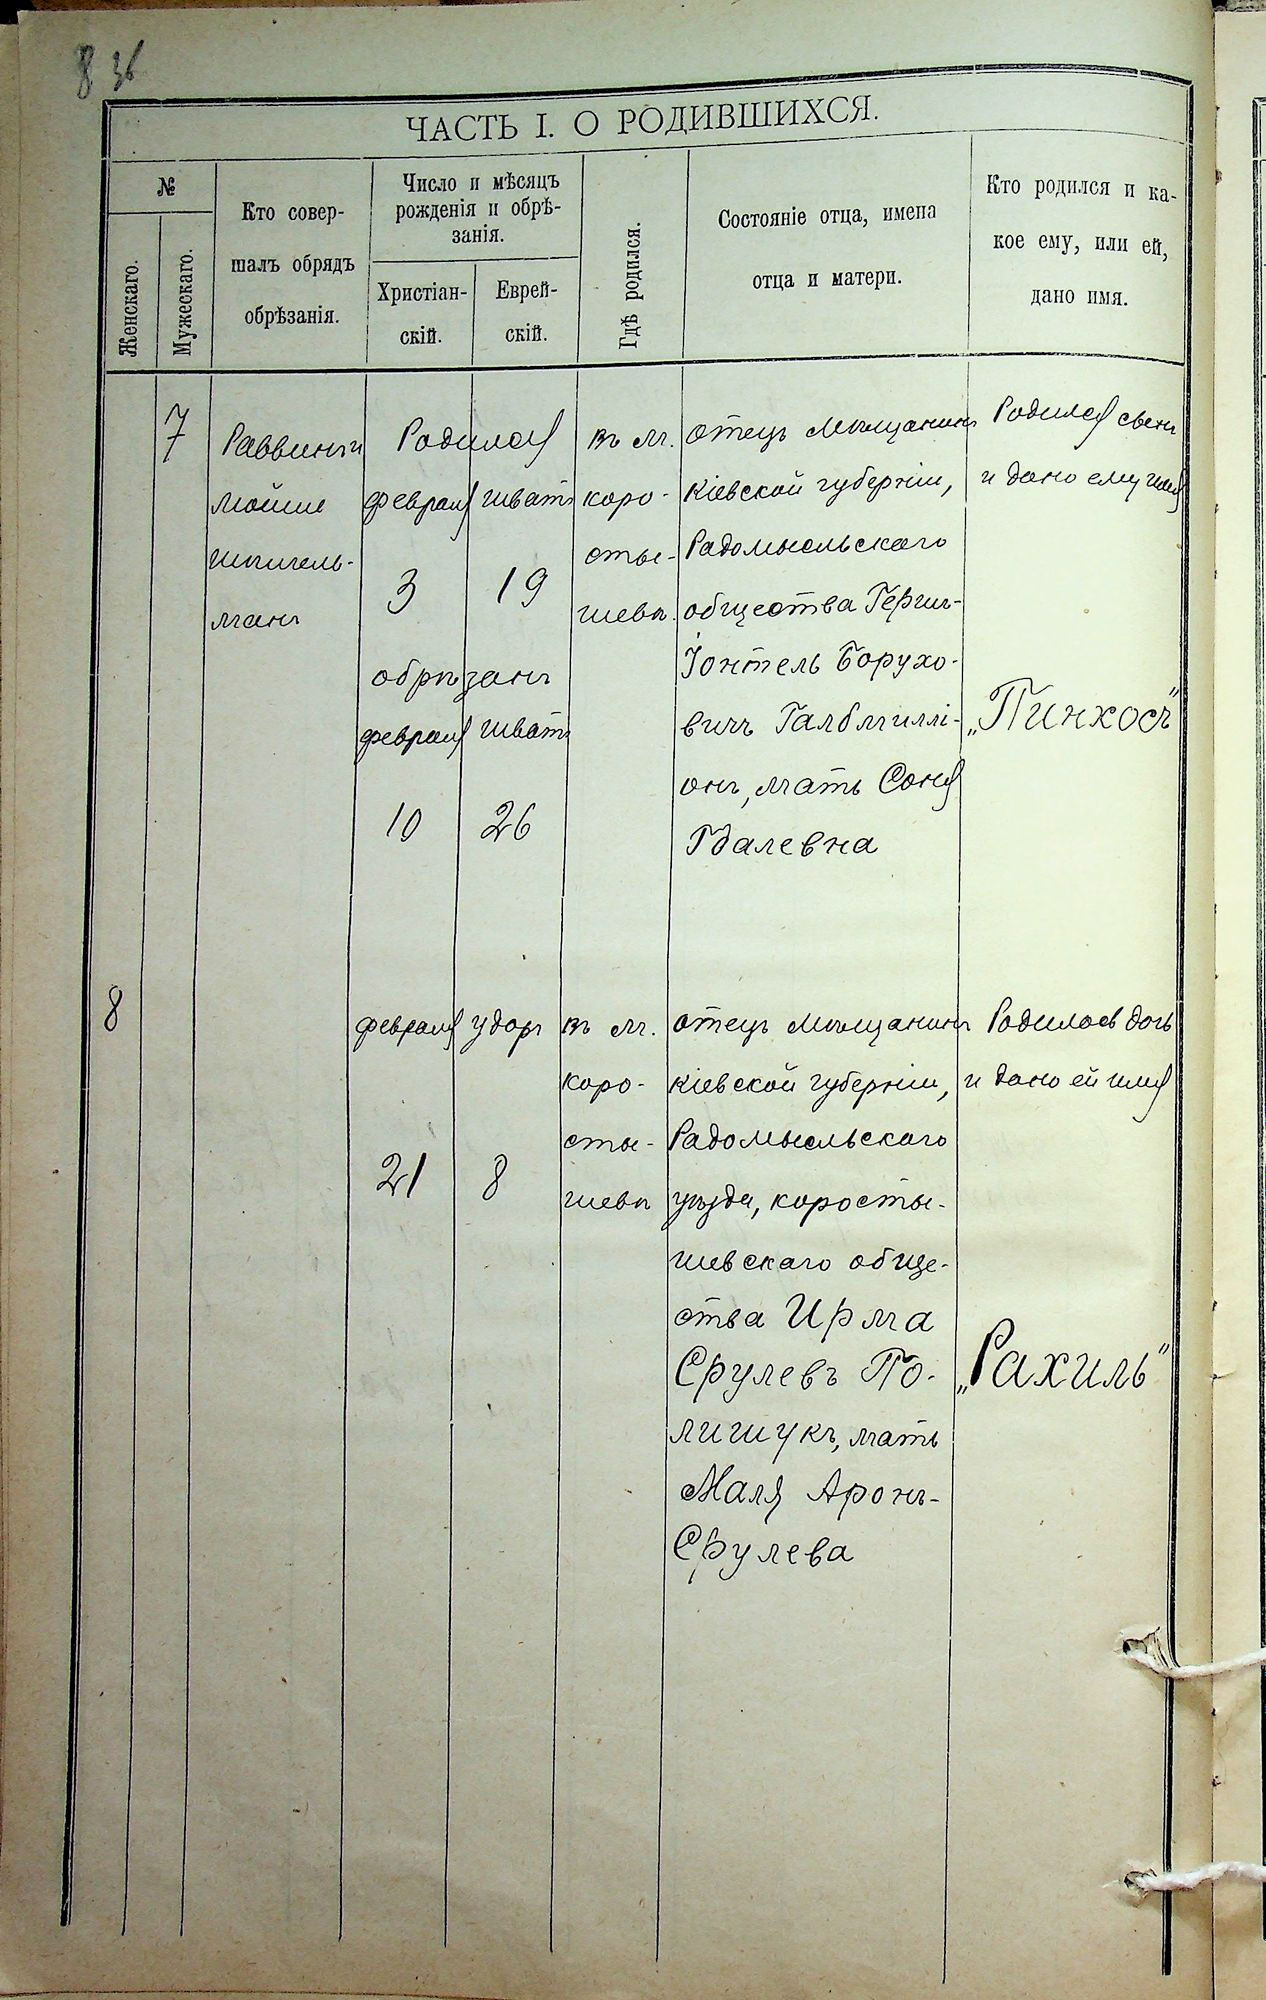 8 36
ЧАСТЬ I. О РОДИВШИХСЯ.
№
Женскаго.
Мужескаго.
Кто совер-
шалъ обрядъ
обрѣзанія.
Число и мѣсяцъ
рожденія и обрѣ-
занія.
Христіан-
скій.
Еврей-
скій.
Гдѣ родился.
Состояніе отца, имена
отца и матери.
Кто родился и ка-
кое ему, или ей,
дано имя.
7
Раввинъ
Мойше
шпигель-
манъ
Родился
февраля шватъ
3 19
обрѣзанъ
февраля шватъ
10 26
въ м.
коро-
сты-
шевѣ
отецъ мѣщанинъ
Кіевской губерніи,
Радомысльскаго
общества Гершъ-
Іонтель Борухо-
вичъ Галбмиллі-
онъ, мать Соня
Гдалевна
Родился сынъ
и дано ему имя
„Пинхосъ"
8
февраля удоръ
21 8
въ м.
коро-
сты-
шевѣ
отецъ мѣщанинъ
Кіевской губерніи,
Радомысльскаго
уѣзда, коросты-
шевскаго обще-
ства Ирма
Срулевъ По-
лишукъ, мать
Маля Аронъ-
Срулева
Родилась дочь
и дано ей имя
„Рахиль"